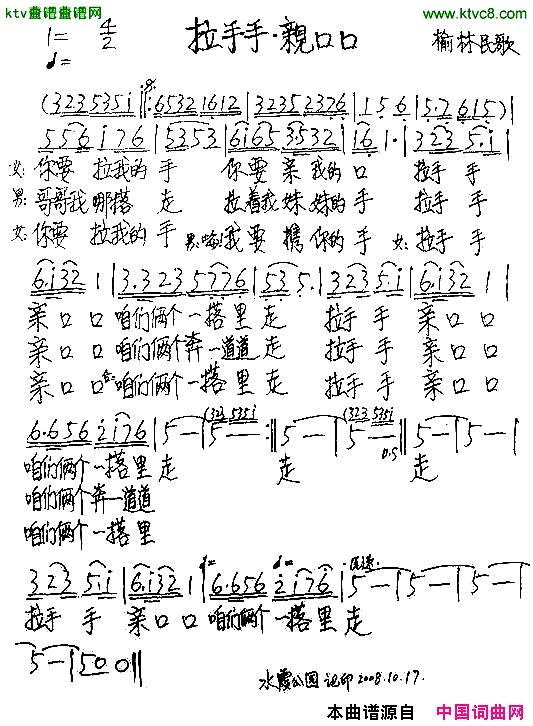 ktv曲谱曲谱网
www.ktvc8.com
1= 4/2
拉手手·親口口
榆林民歌
(323 535i ‖: 6532 1612 | 3235 2376 | 1 5 6 | 5·7 615) |
556 i76 | 5353 | 6i65 3532 | 16 1· | 323 5·i |
女: 你要 拉我的 手 你要 亲 我的 口 拉手 手
男: 哥哥我 哪搭 走 拉着我 妹妹的 手 拉手 手
女: 你要 拉我的 手 男: 我要 携 你的 手 女: 拉手 手
6·i32 1 | 3·323 5776 | 53 5· | 323 5·i | 6·i32 1 |
亲口 口 咱们俩个 一搭里 走 拉手 手 亲口 口
亲口 口 咱们俩个奔一道道 走 拉手 手 亲口 口
亲口 口 合: 咱们俩个 一搭里 走 拉手 手 亲口 口
(323 535i (323 535i
6·656 2i76 | 5 — | 5 — :‖ 5 — | 5 — ‖ 5 — | 5 — |
D.S
咱们俩个 一搭里 走 走 走
咱们俩个奔一道道
咱们俩个 一搭里
323 5i | 6·i32 1 | 6·656 2i76 | 5 — | 5 — | 5 — |
拉手 手 亲口 口 咱们俩个 一搭里 走
5 — | 50 0 ‖
水霞公园 记印 2008.10.17.
本曲谱源自 中国词曲网